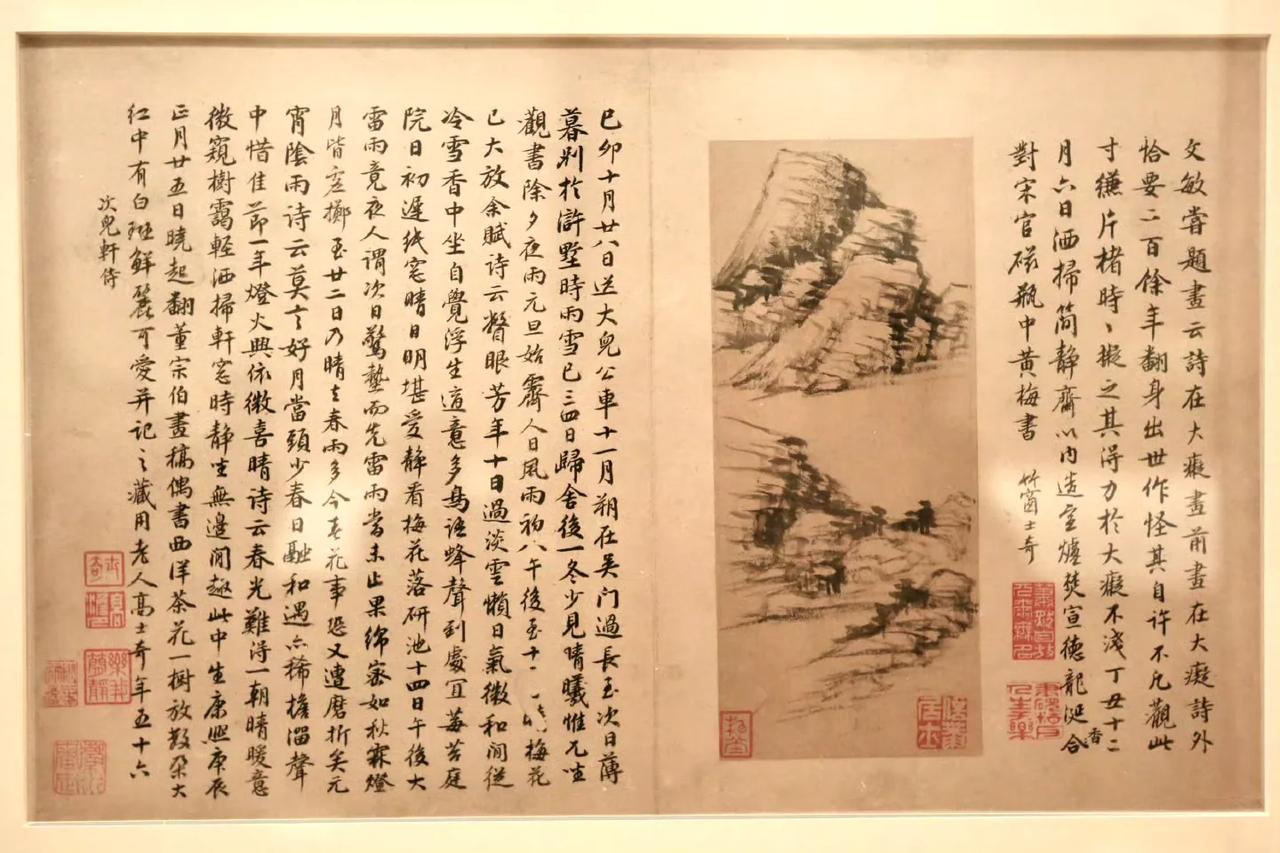 文敏嘗題畫云詩在大癡畫前畫在大癡詩外
恰要二百餘年翻身出世作怪其自許不凡觀此
寸縑片楮時〻擬之其得力於大癡不淺丁丑十二
月六日洒掃簡靜齋以內造宣爐焚宣德龍涎合
香
對宋官磁瓶中黃梅書 竹窗士奇
己卯十月廿八日送大兒公車十一月朔在吳门過長至次日薄
暮别於滸墅時雨雪已三四日歸舍後一冬少見晴曦惟兀坐
觀書除夕夜雨元旦始霽人日風雨初八午後至十 梅花
已大放余賦诗云瞥眼芳年十日過淡雲懶日氣微和閒從
冷雪香中坐自覺浮生適意多鳥语蜂聲到處宜莓苔庭
院日初遲纸窓晴日明堪愛靜看梅花落研池十四日午後大
雷雨竟夜人謂次日驚蟄而先雷雨當未止果綿密如秋霖燈
月皆虛擲至廿二日乃晴立春雨多今年花事恐又遭磨折矣元
宵陰雨诗云莫言好月當頭少春日融和遇亦稀檐溜聲
中惜佳節一年燈火興依微喜晴诗云春光難得一朝晴暖意
微窺樹靄輕洒掃軒窓時靜坐無邊閒趣此中生康熙庚辰
正月廿五日曉起翻董宗伯畫稿偶書西洋茶花一樹放數朶大
红中有白斑鮮麗可愛并記之藏用老人高士奇年五十六
次兒軒侍